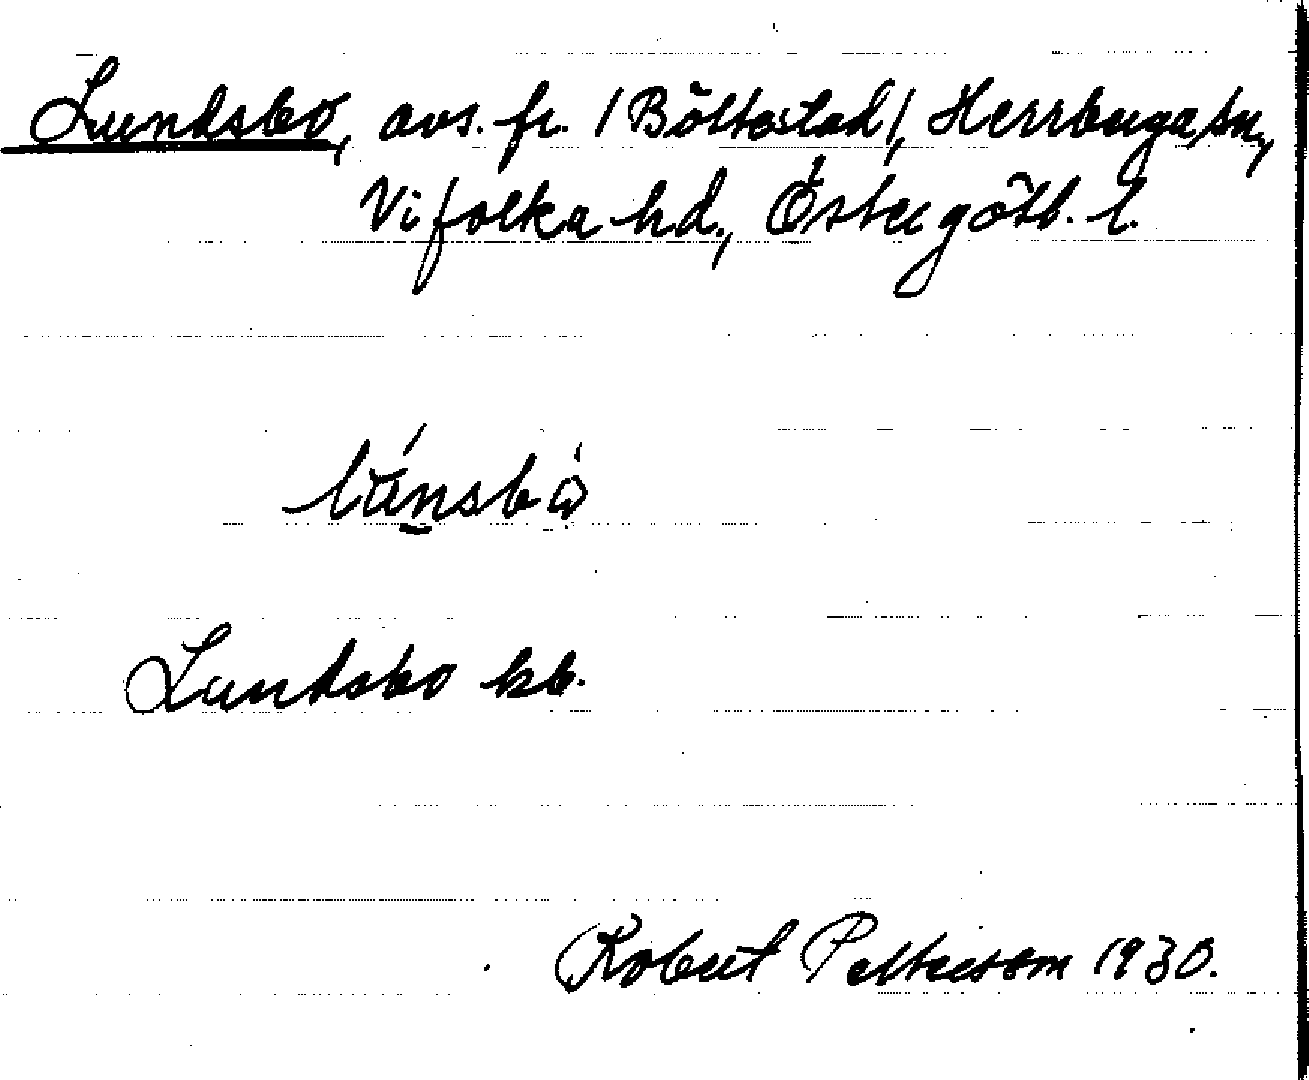 Lundsbo, avs. fr. /Böltestad/, Herrberga sn,
Vifolka hd., Östergötl. l.
Lundsbo kb.
Robert Pettersson 1930.